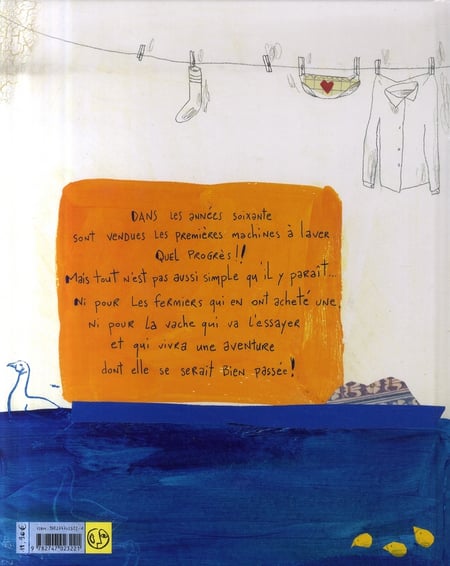 Dans les années soixante
sont vendues les premières machines à laver
Quel progrès !!
Mais tout n'est pas aussi simple qu'il y paraît...
Ni pour les fermiers qui en ont acheté une,
ni pour la vache qui va l'essayer
et qui vivra une aventure
dont elle se serait bien passée !
9 782747 023221